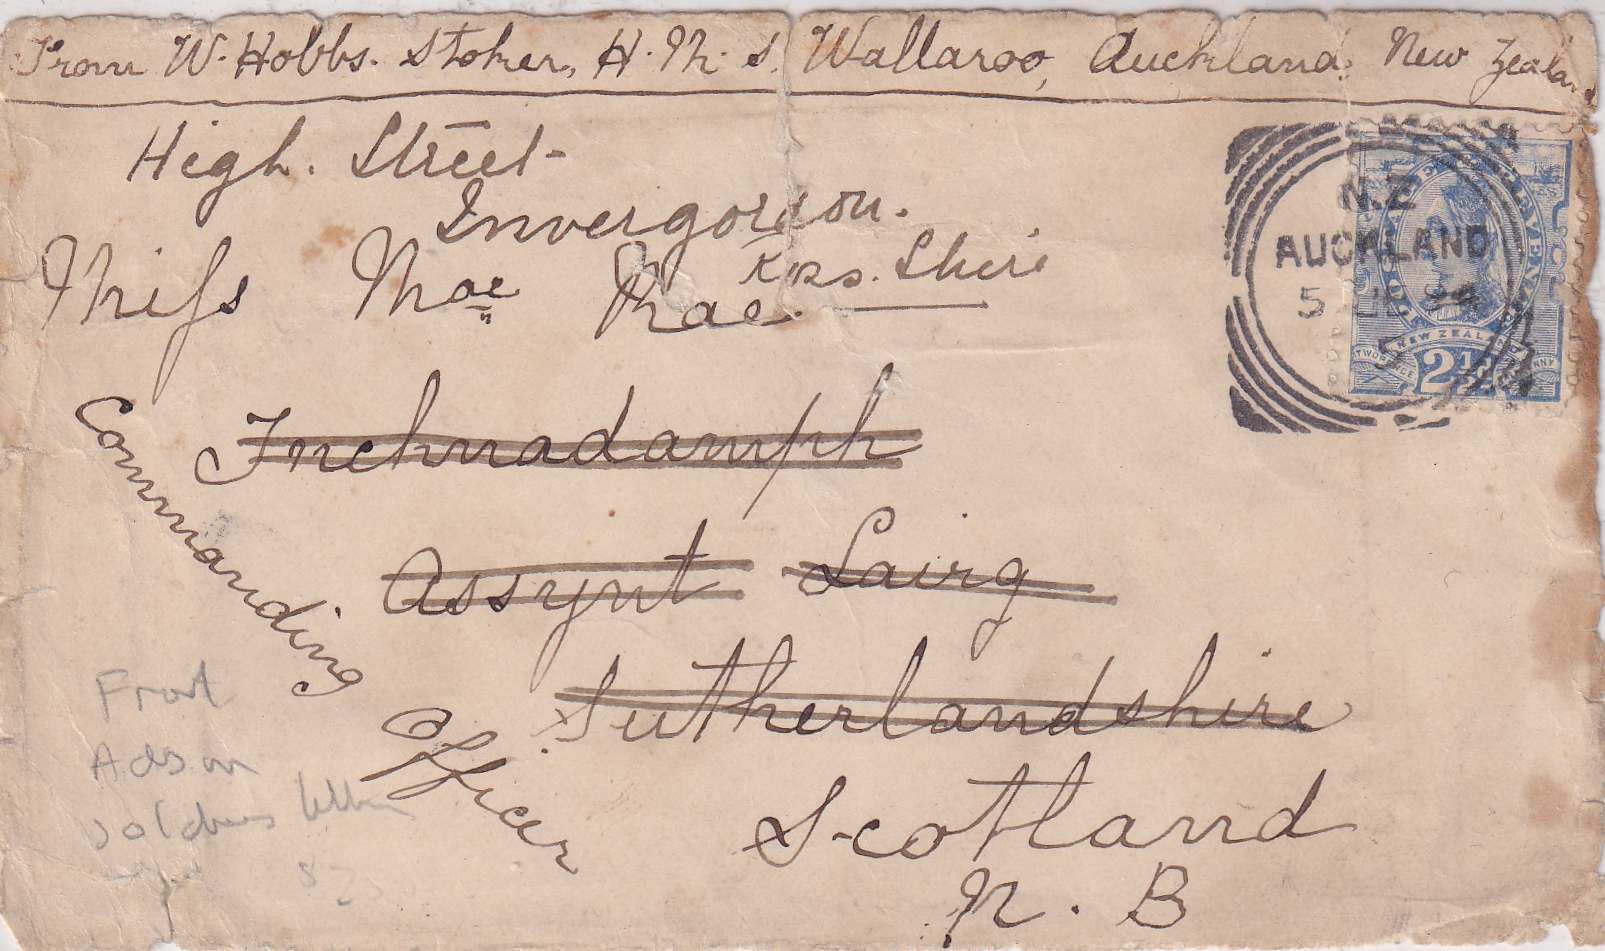 From W. Hobbs. Stoker, H. M. S. Wallaroo, Auckland, New Zealand
High. Street
Invergordon.
Ross. Shire
Miss Mac Rae.
Inchnadamph
Assynt Lairg
Sutherlandshire
Scotland
N. B
Commanding
Officer
N.Z
AUCKLAND
5
NEW ZEALAND
2½d
Front
Ads on
soldiers letter